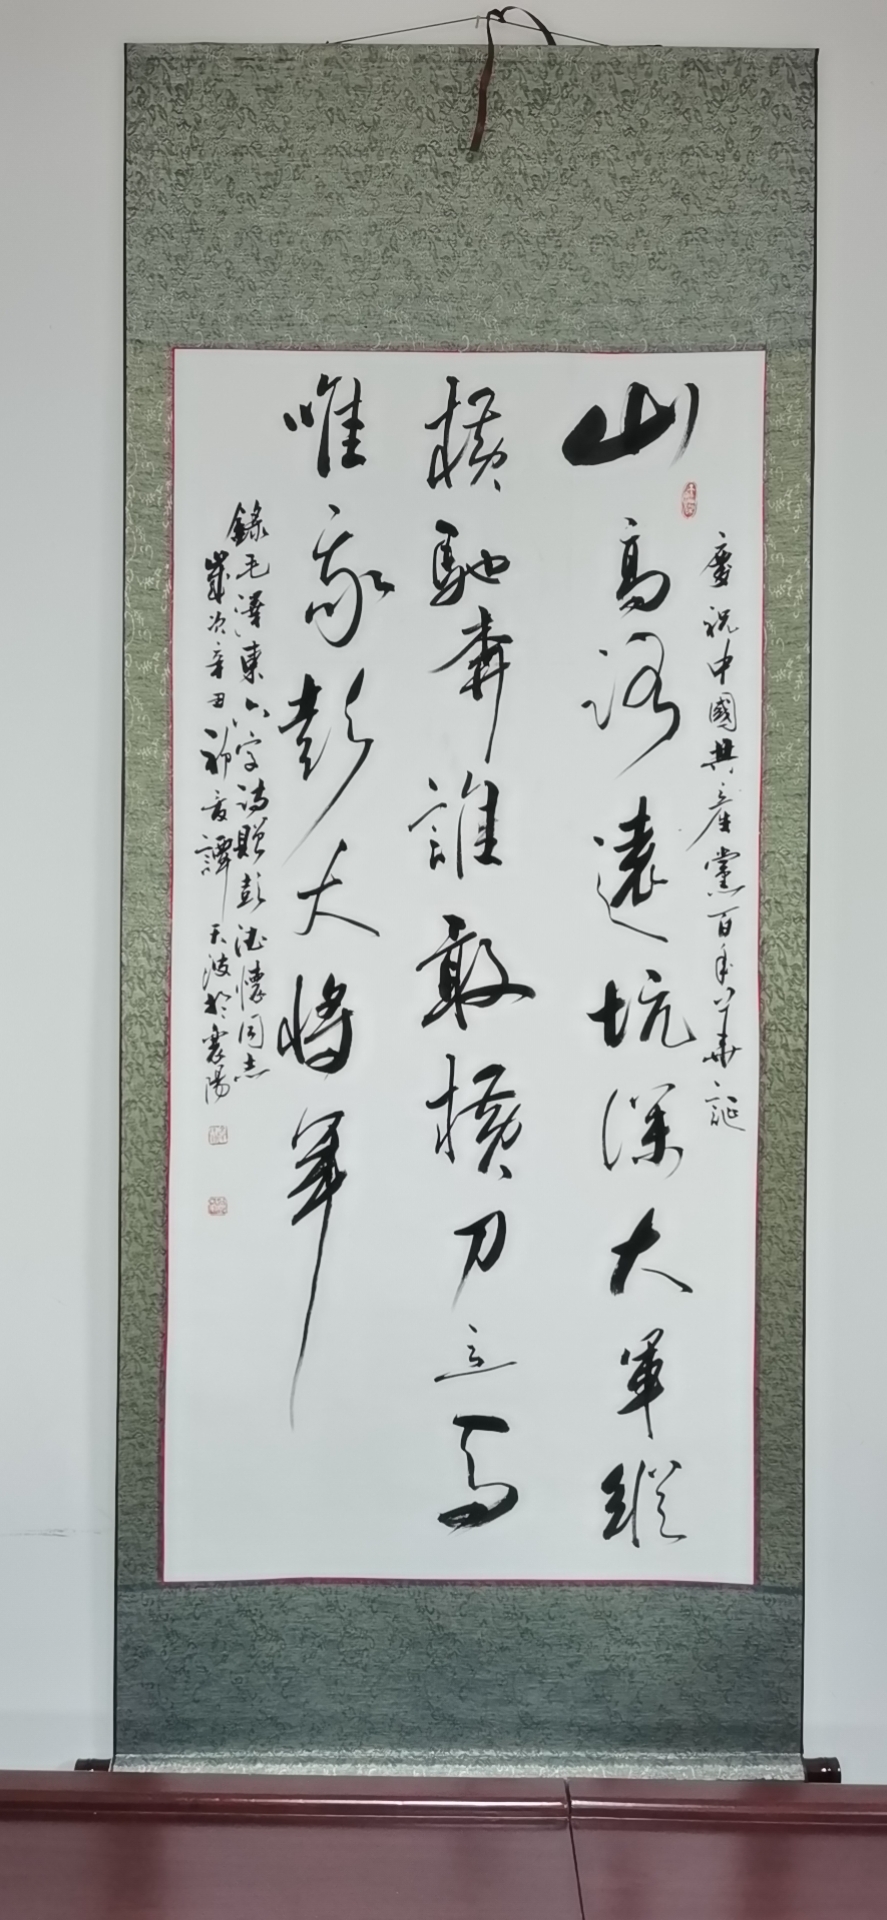 慶祝中國共產黨百年華誕
山高路遠坑深大軍縱
橫馳奔誰敢橫刀立馬
唯我彭大將軍
錄毛澤東六字詩贈彭德懷同志
歲次辛丑初夏譚天波於襄陽